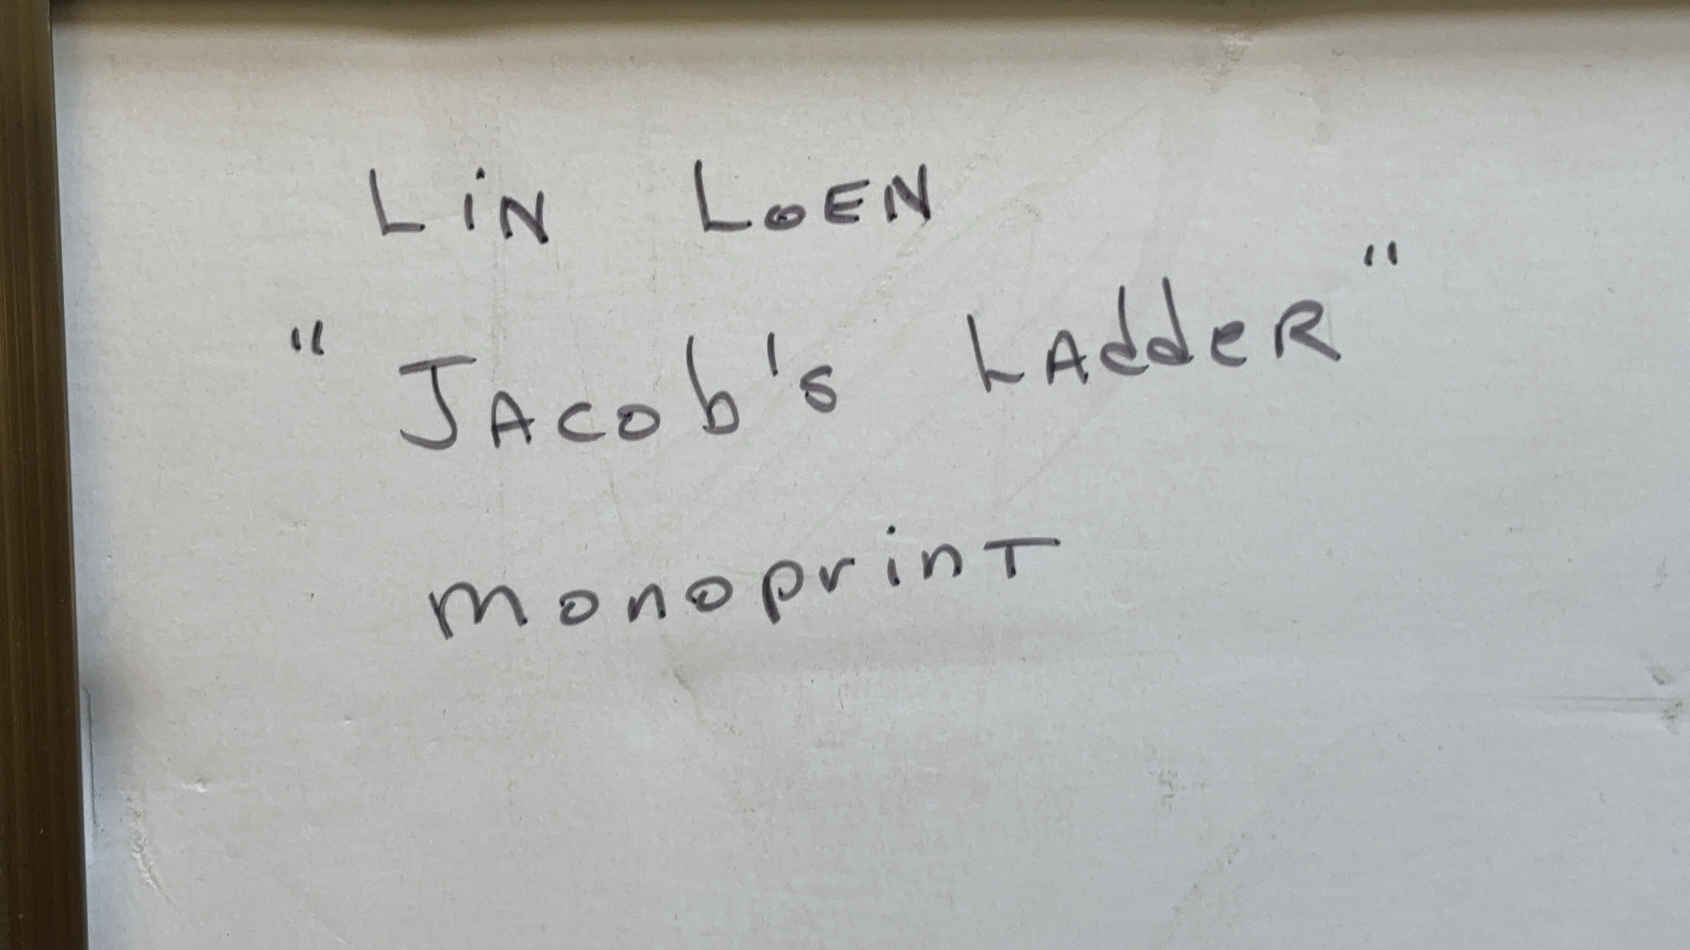 LiN LoEN
"JAcob's LAddeR"
monoprinT